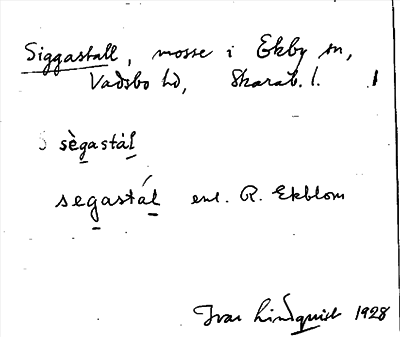 Siggastall, mosse i Ekby sn,
Vadsbo hd, Skarab. l.
sègastál
segastál enl. R. Ekblom
Ivar Lindquist 1928